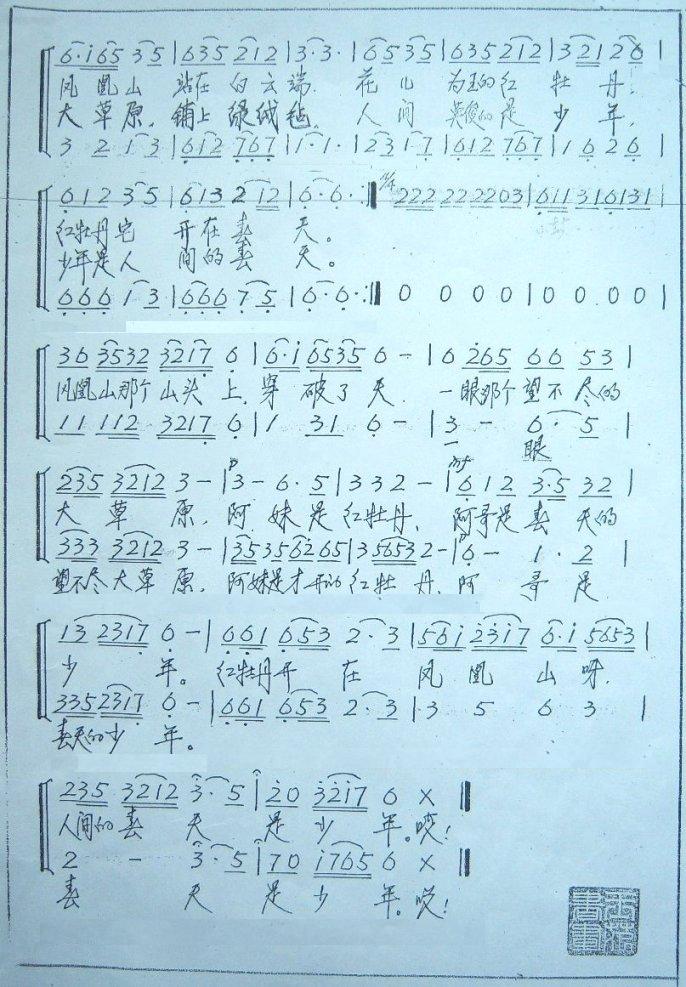 6·i65 35 | 635 212 | 3·3· | 65 35 | 635 212 | 3 21 2 6 |
凤凰山 站在白云端. 花儿 为王的红 牡 丹.
大草原, 铺上绿绒毡. 人间 英俊的是 少 年,
3 2 1 3 | 612 767 | 1·1· | 23 17 | 612 767 | 1 6 2 6 |
6 1 2 3 5 | 613 2 12 | 6·6· :| 222 22 2203 | 611 31 6131 |
红牡丹它 开在春 天。
少年是人 间的春 天。
666 1 3 | 666 7 5 | 6·6· :| 0 0 0 0 | 0 0 0 0 |
36 3532 3217 6 | 6·i 6535 6 - | 6 265 66 53 |
凤凰山那个 山头 上, 穿 破了 天. 一眼那个望不 尽的
11 112 3217 6 | 1 31 6 - | 3 - 6· 5 |
眼
235 3212 3 - | 3 - 6· 5 | 3 3 2 - | 6 1 2 3·5 32 |
大 草 原, 阿 妹 是 红牡丹, 阿哥是 春 天的
333 3212 3 - | 35 35 62 65 | 3 5653 2 - | 6 - 1· 2 |
望不尽大草 原, 阿妹是才开的 红牡 丹, 阿 哥 是
13 2317 6 - | 661 653 2·3 | 56i 2317 6·i 5653 |
少 年。 红牡丹开 在 凤 凰 山 呀.
335 2317 6 - | 661 653 2·3 | 3 5 6 3 |
春天的少 年。
235 3212 3·5 | 20 3217 6 X ‖
人间的春 天 是 少 年。哎!
2 - 3·5 | 70 i765 6 X ‖
春 天 是 少 年。哎!